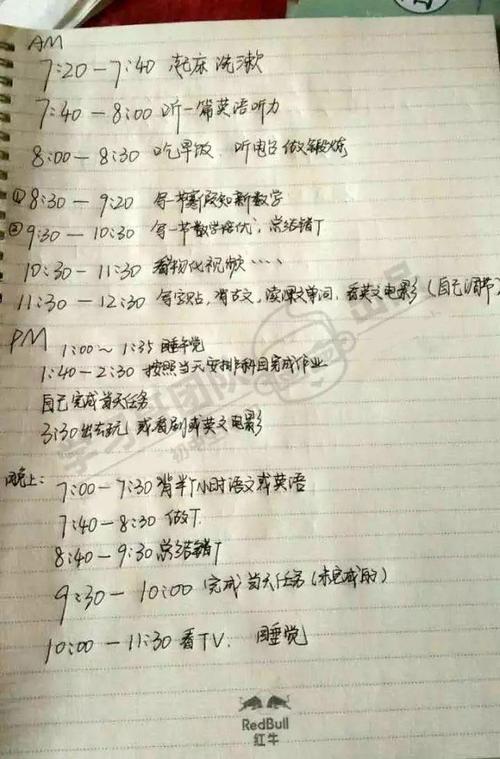 AM
7:20-7:40 起床洗漱
7:40-8:00 听一篇英语听力
8:00-8:30 吃早饭、听电台做锻炼
①8:30-9:20 写一节新数学
②9:30-10:30 写一节数学培优,总结错T
10:30-11:30 看物化视频....
11:30-12:30 看英文电影(自己调节)
PM
1:00~1:35 睡午觉
1:40-2:30 按照当天安排科目完成作业
自己完成当天任务
3:30出去玩 或看剧或英文电影
晚上:
7:00-7:30 背半个小时语文或英语
7:40-8:30 做T.
8:40-9:30 总结错T
9:30-10:00 完成当天任务(未完成的)
10:00-11:30 看TV. 睡觉
RedBull
红牛